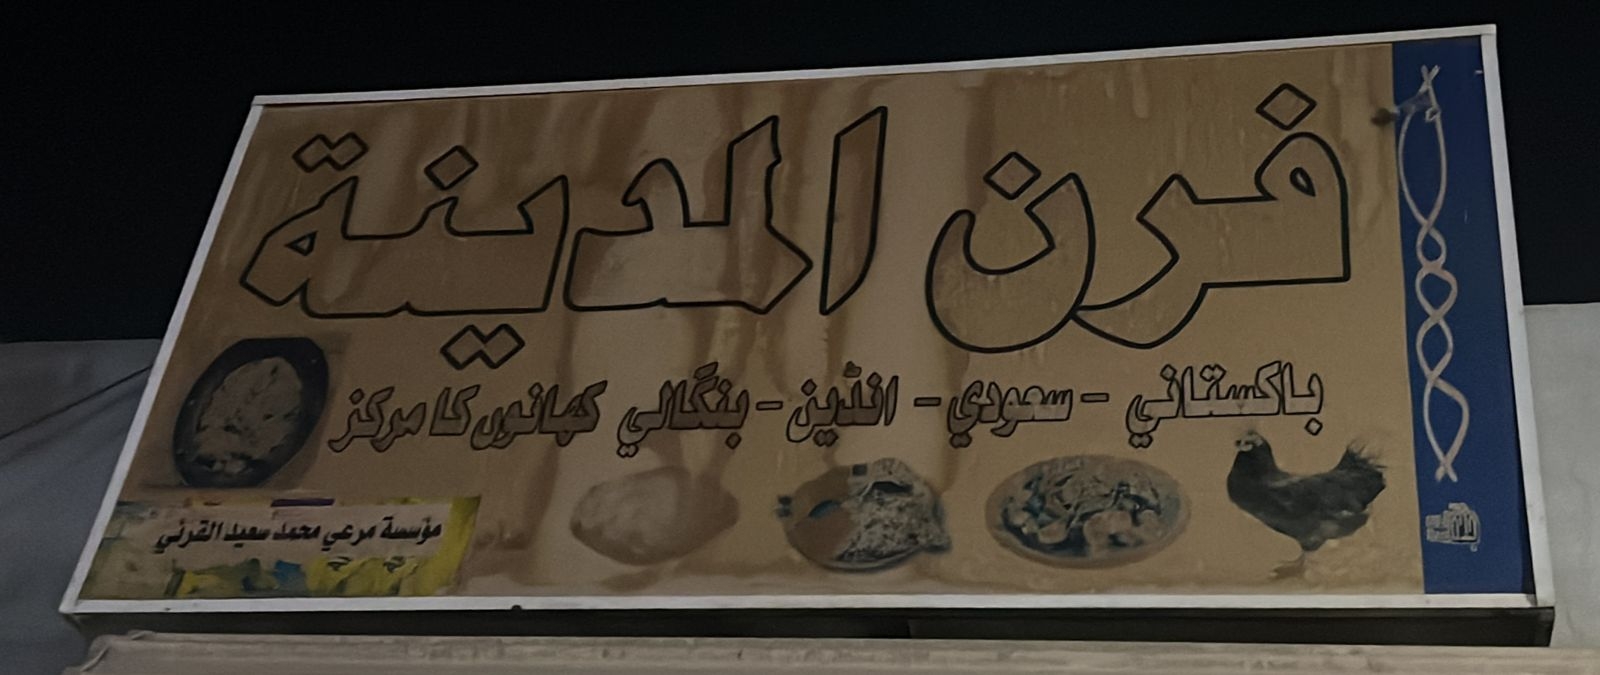 فرن المدينة
باكستاني - سعودي - انڈين - بنگالي کھانوں کا مرکز
مؤسسة مرعي محمد سعيد القرني